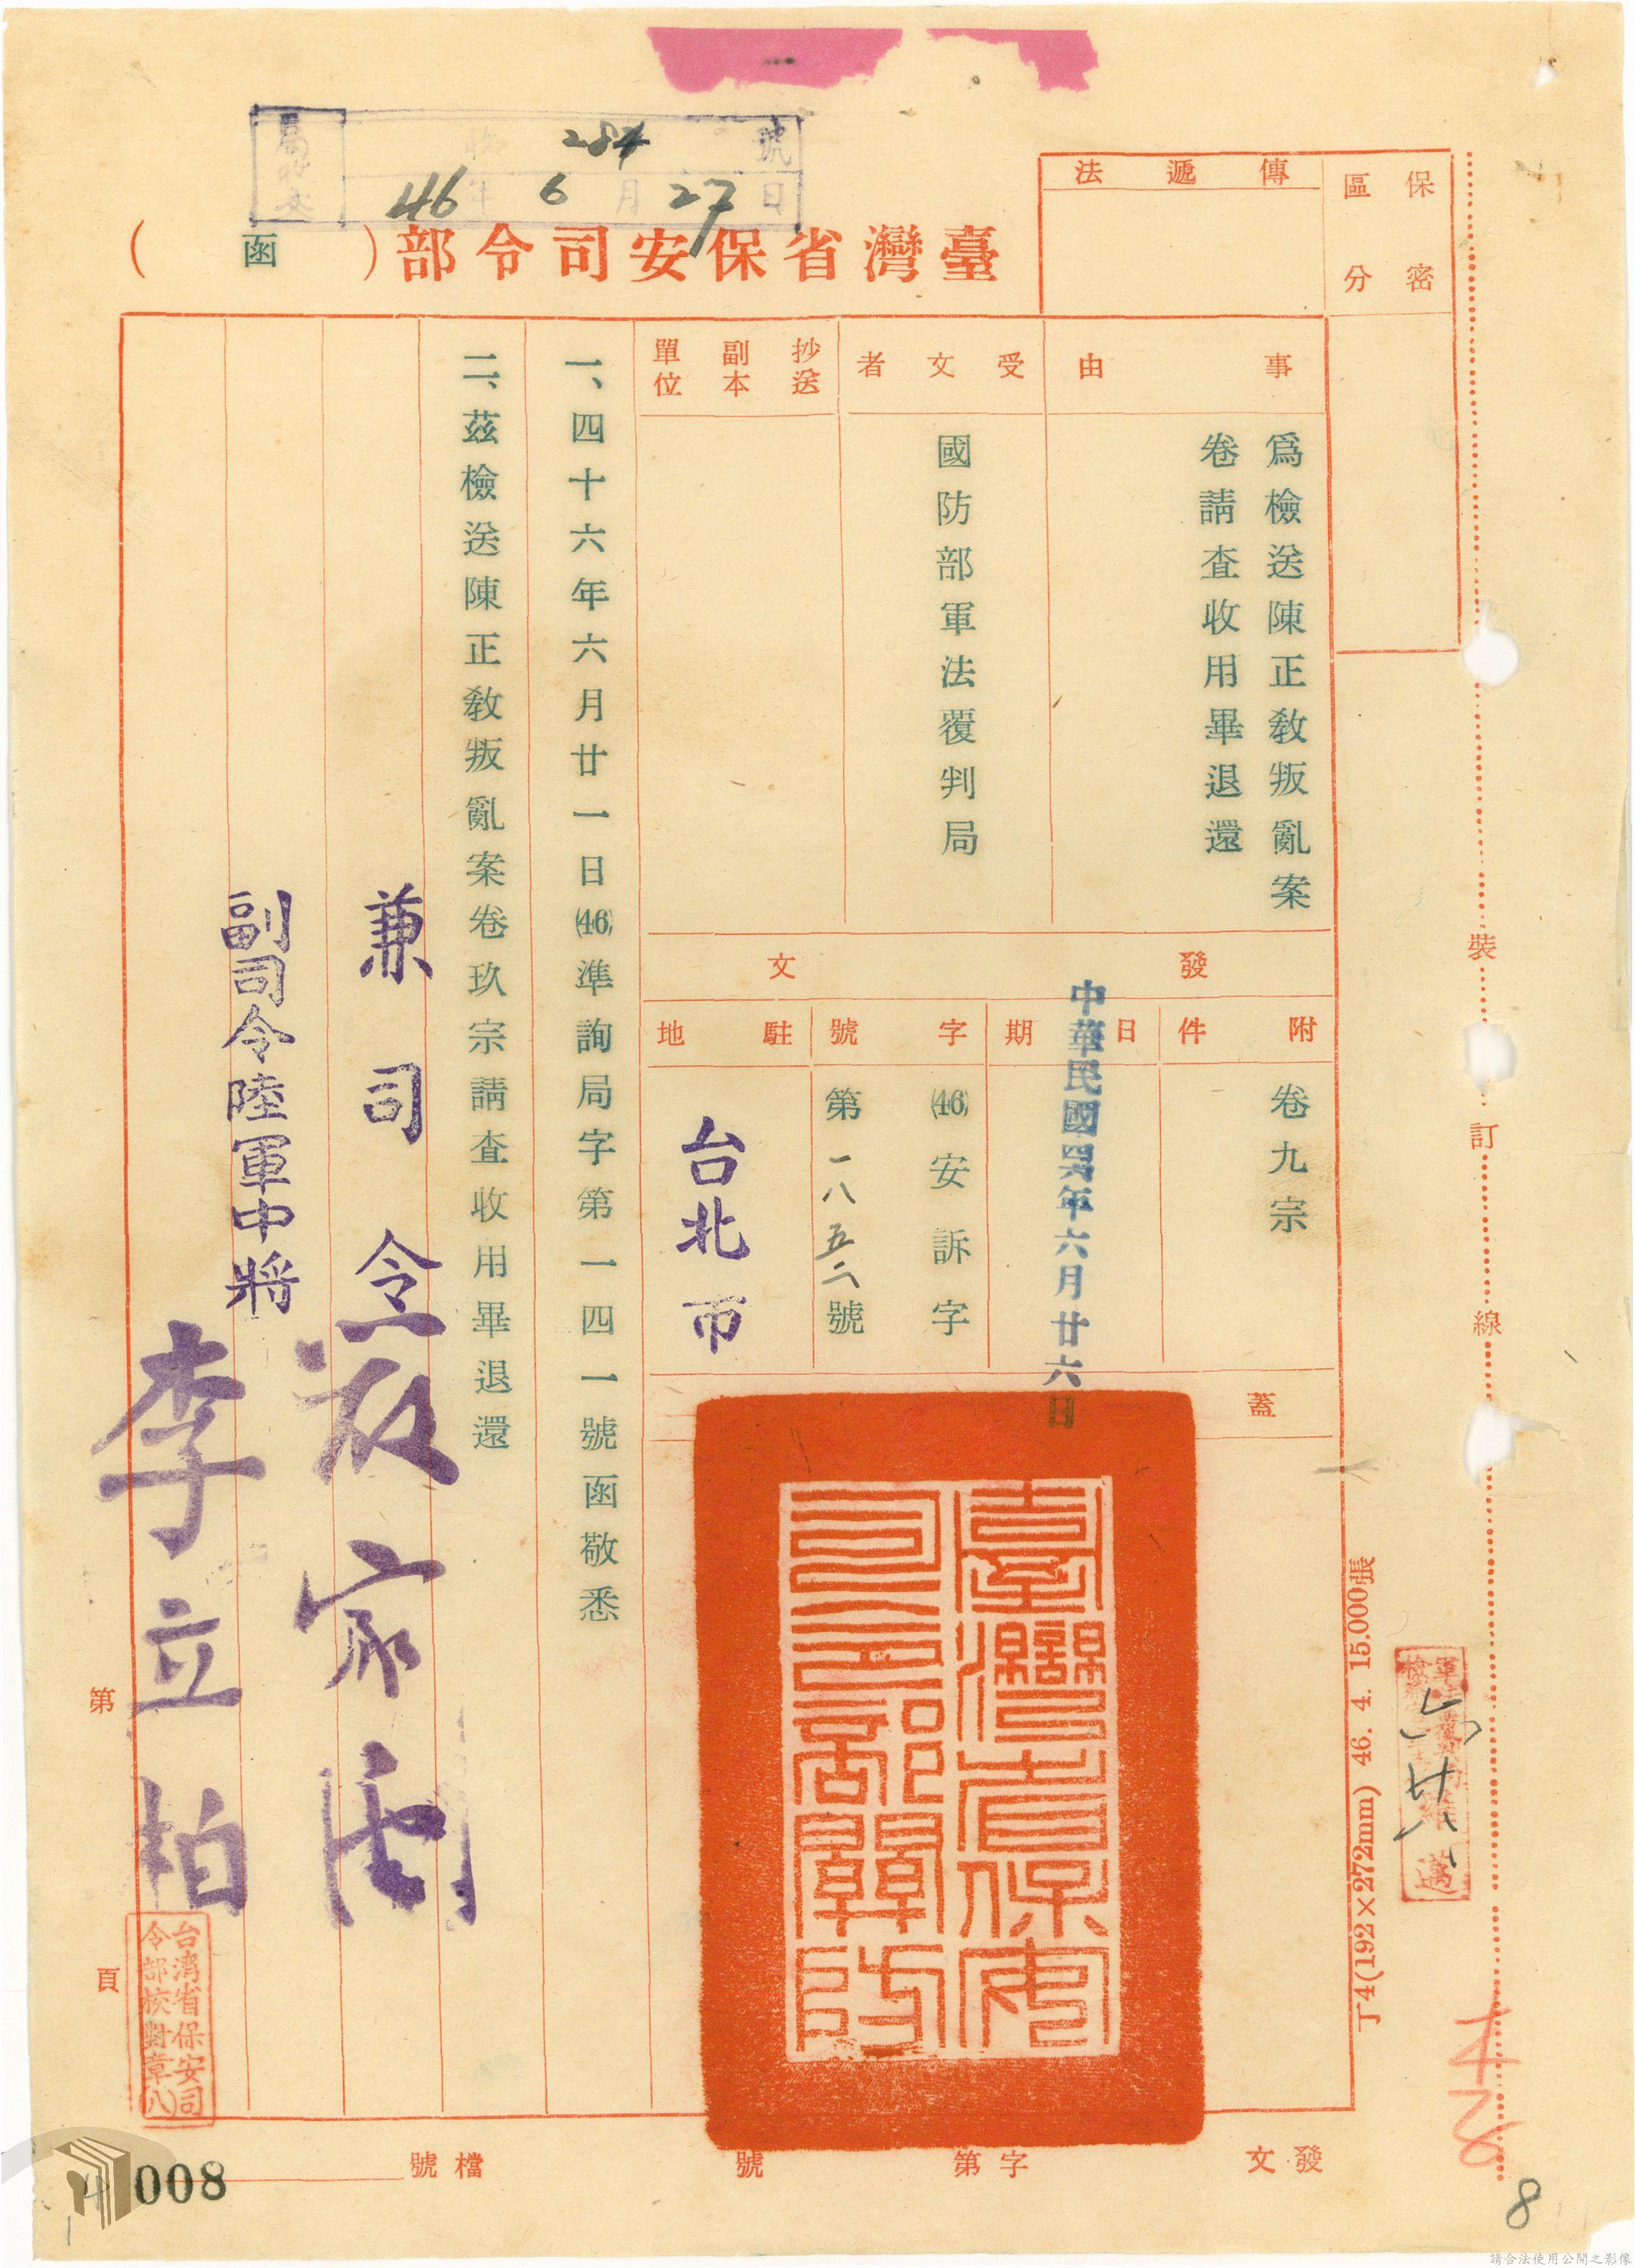 保密
區分
傳遞法
臺灣省保安司令部（函）
284 號
46年6月27日
事由
為檢送陳正教叛亂案
卷請查收用畢退還
受文者
國防部軍法覆判局
抄送
副本
單位
發文
附件
卷九宗
日期
中華民國四六年六月廿六日
字號
(46)安訴字
第一八五二號
駐地
台北市
蓋
臺灣省保安
司令部關防
一、四十六年六月廿一日(46)準詢局字第一四一號函敬悉
二、茲檢送陳正教叛亂案卷玖宗請查收用畢退還
兼司令
副司令陸軍中將
李立柏
台灣省保安司
令部校對章(八)
第
頁
裝
訂
線
丁4(192×272mm) 46. 4. 15.000張
六廿八
發文
字第
號
檔號
008
8
請合法使用公開之影像